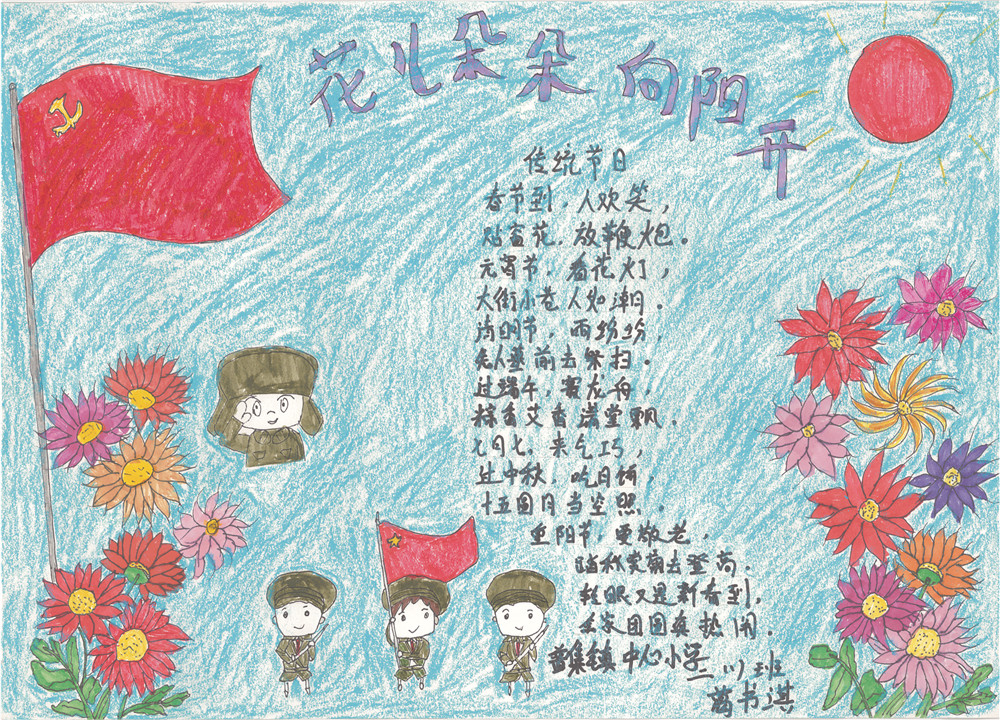 花儿朵朵向阳开
传统节日
春节到，人欢笑，
贴窗花，放鞭炮。
元宵节，看花灯，
大街小巷人如潮。
清明节，雨纷纷，
先人墓前去祭扫。
过端午，赛龙舟，
粽香艾香满堂飘。
七月七，来乞巧，
过中秋，吃月饼，
十五圆月当空照。
重阳节，要敬老，
踏秋赏菊去登高。
转眼又是新春到，
全家团圆真热闹。
曹集镇中心小学二（1）班